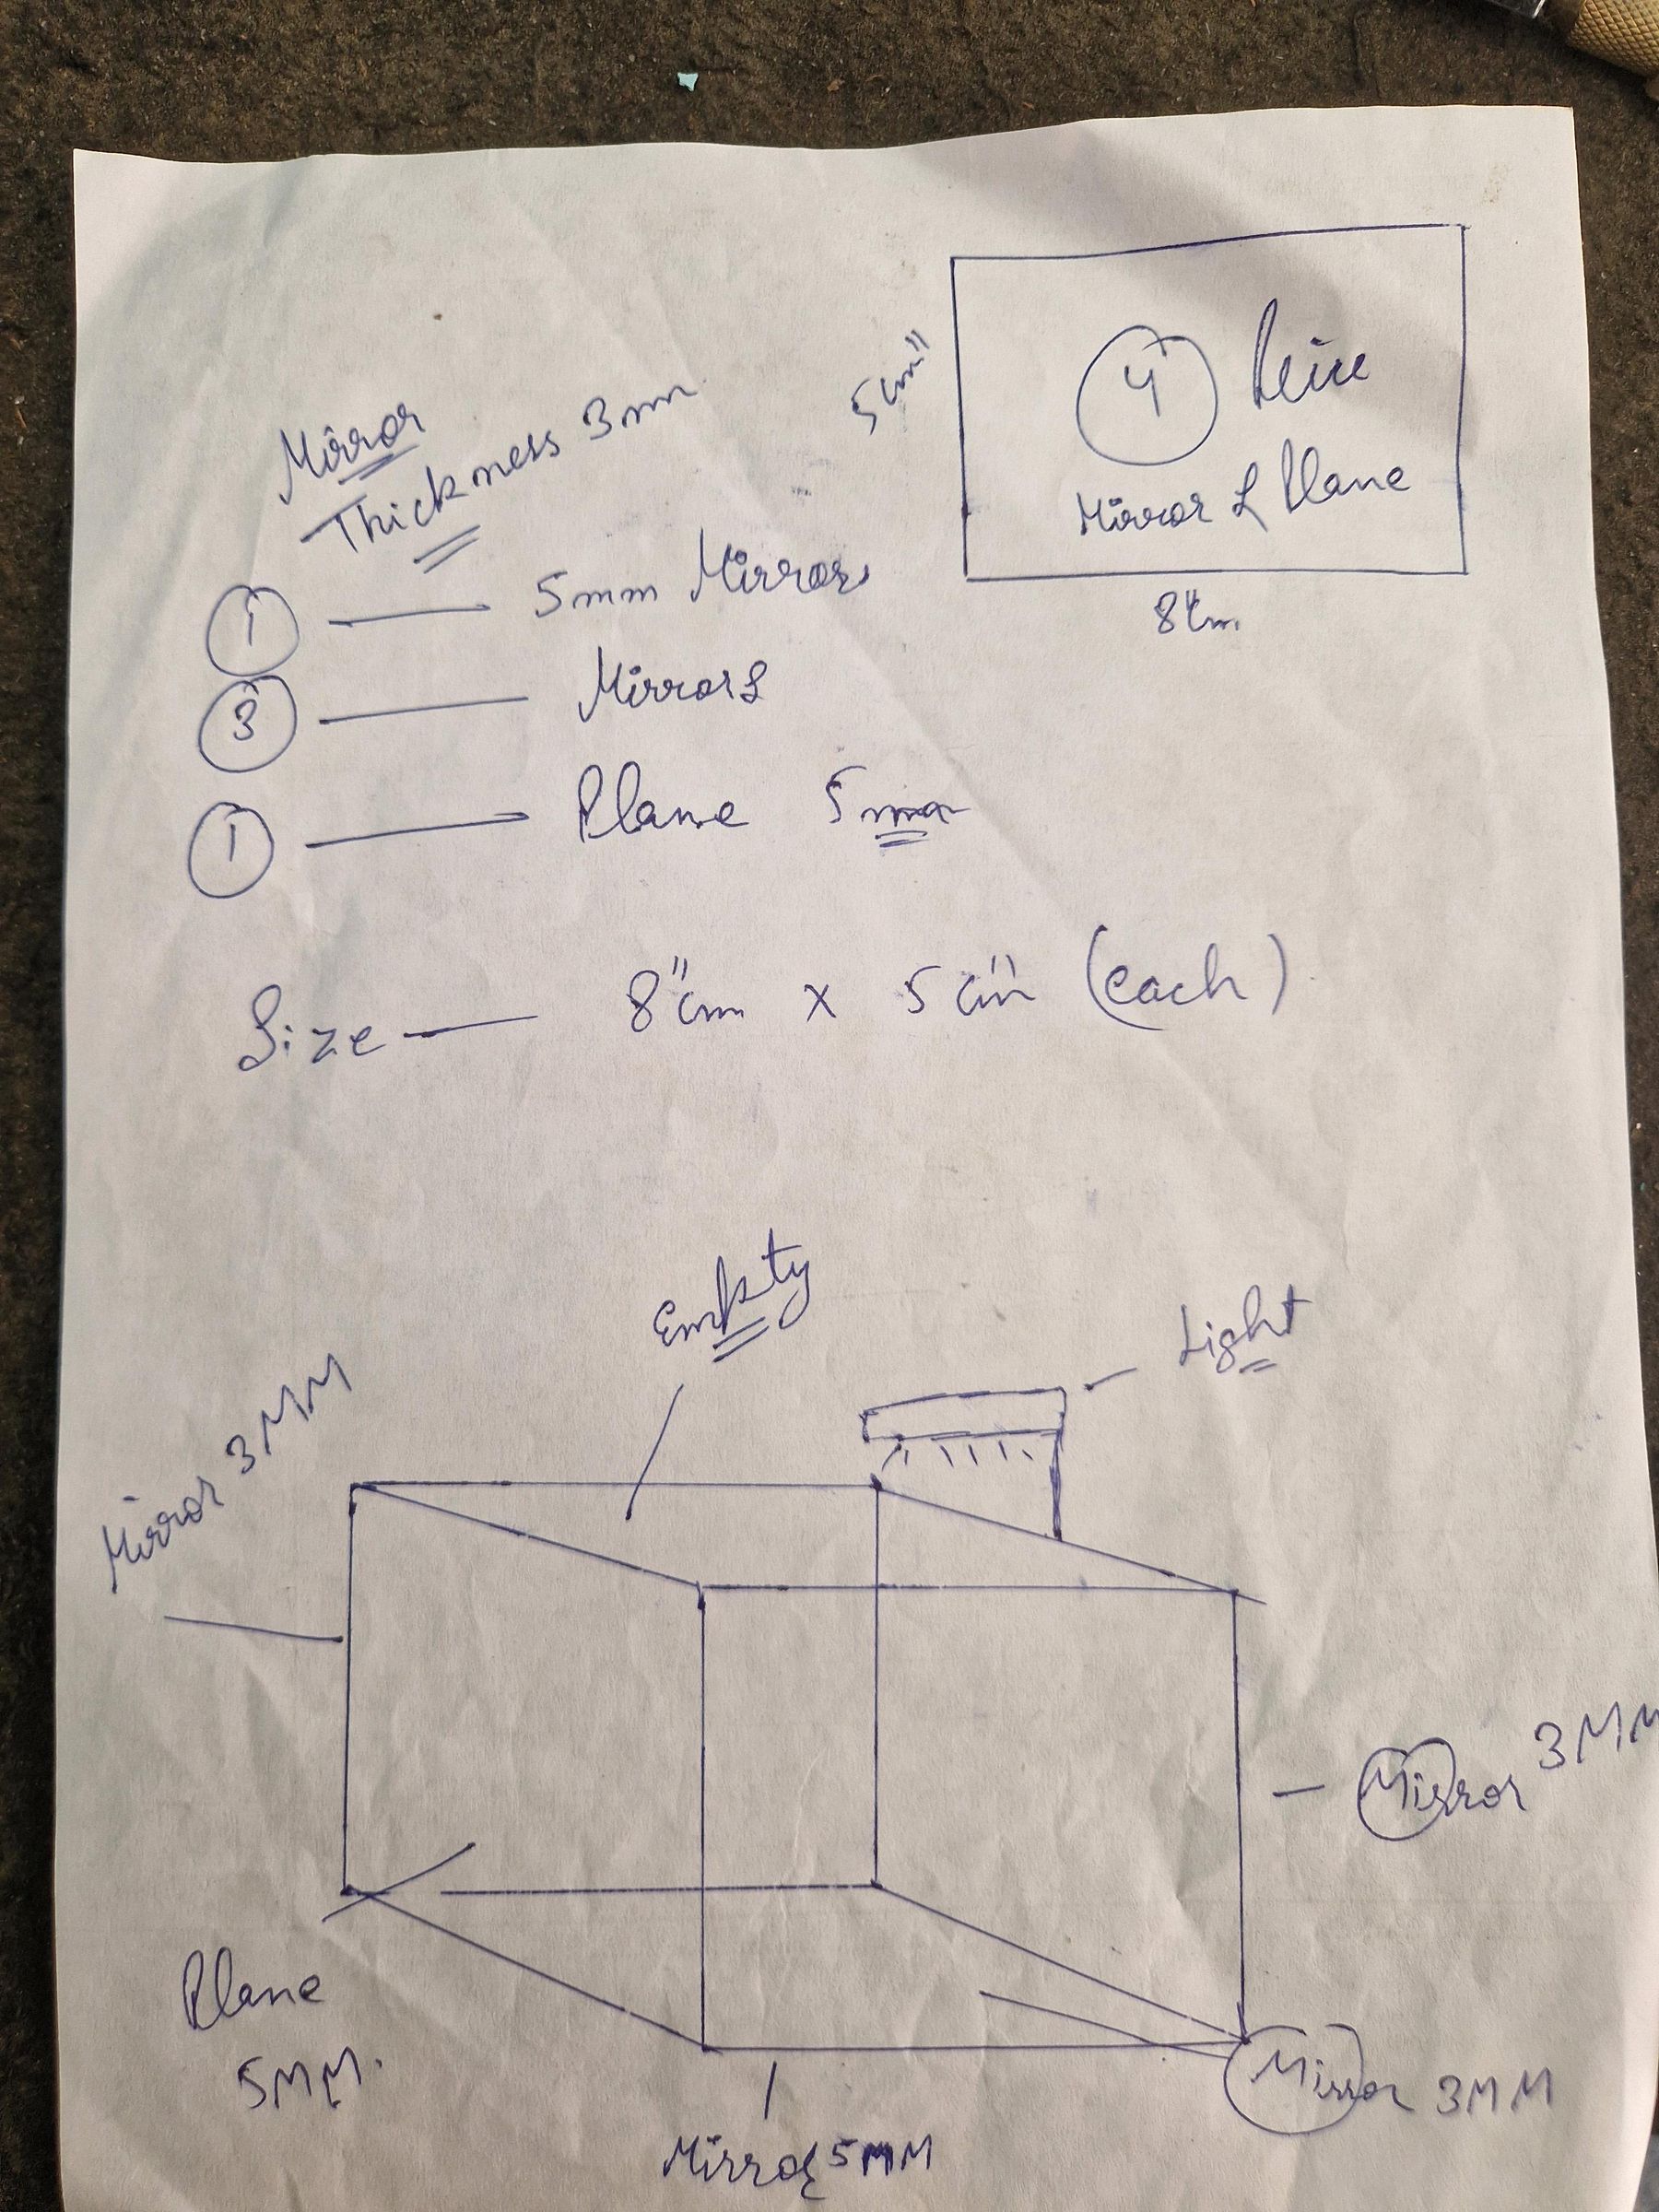 Mirror
Thickness 3mm
5cm"
4
Mirror & Plane
8"cm
1 — 5mm Mirror
3 — Mirrors
1 — Plane 5mm
Size — 8"cm x 5cm" (each)
Empty
Light
Mirror 3MM
Mirror 3MM
Plane
5MM.
Mirror 3MM
Mirror 5MM